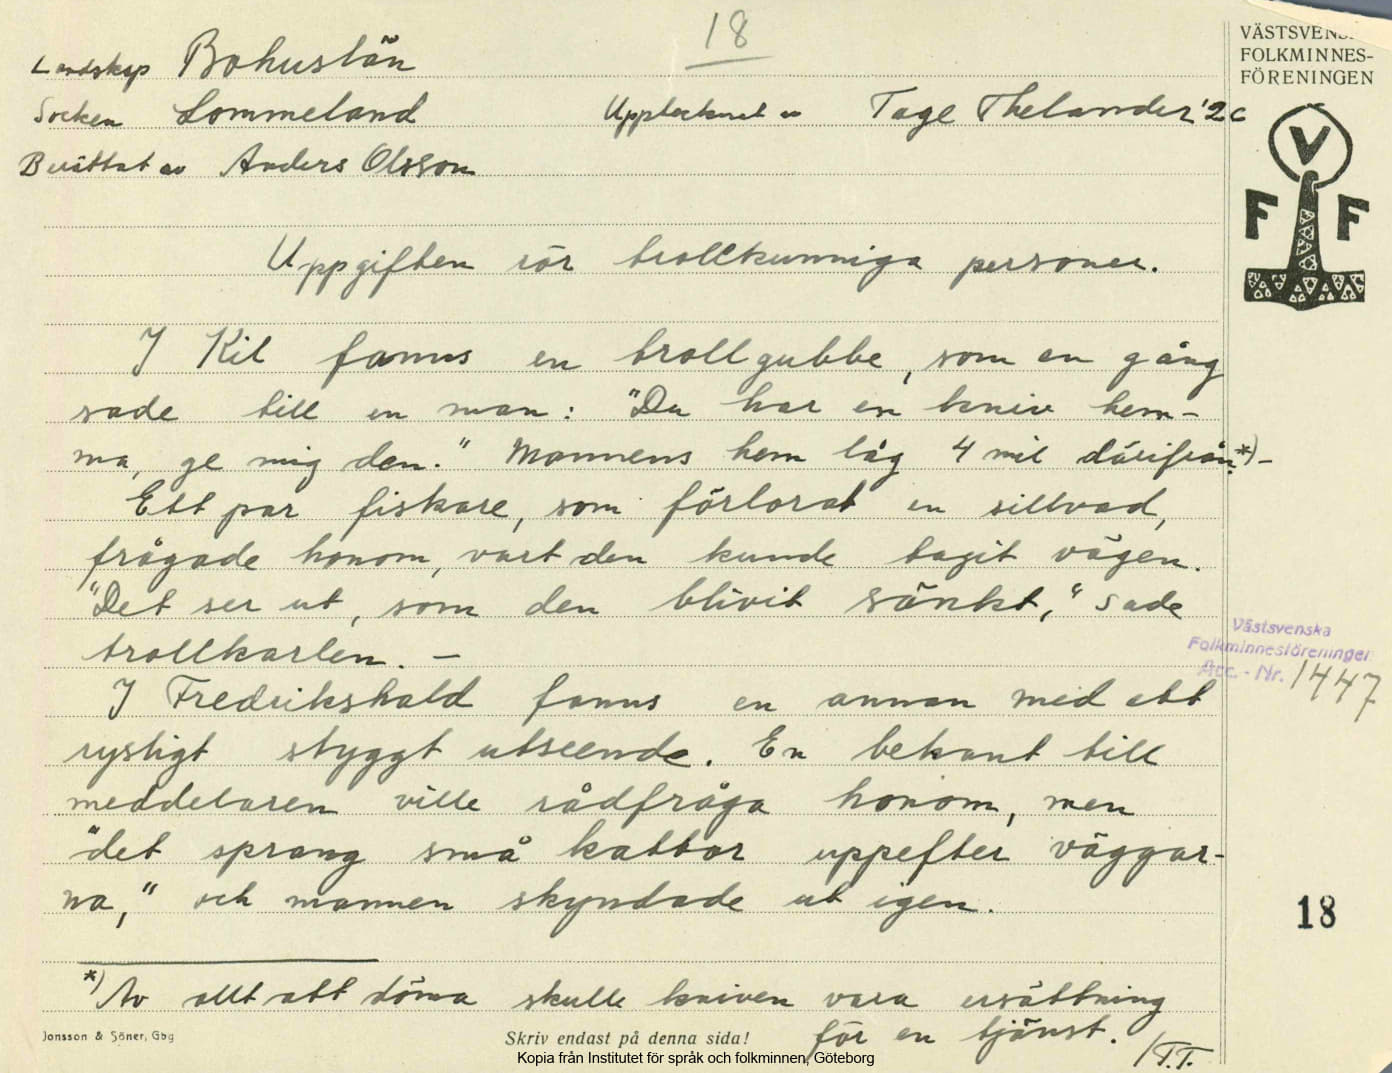 18
VÄSTSVENS
FOLKMINNES-
FÖRENINGEN
Landskap Bohuslän
Socken Lommeland Upptecknat av Tage Thelander '26
Berättat av Anders Olsson
V
F F
Uppgiften rör trollkunniga personer.
I Kil fanns en trollgubbe, som en gång
sade till en man: "Du har en kniv hem-
ma, ge mig den." Mannens hem låg 4 mil därifrån.*) –
Ett par fiskare, som förlorat en sillvad,
frågade honom, vart den kunde tagit vägen.
"Det ser ut, som den blivit sänkt," sade
trollkarlen. –
Västsvenska
Folkminnesföreningen
Acc. - Nr. 1447
I Fredrikshald fanns en annan med ett
rysligt styggt utseende. En bekant till
meddelaren ville rådfråga honom, men
"det sprang små kattor uppefter väggar-
na," och mannen skyndade ut igen.
18
*) Av allt att döma skulle kniven vara ersättning
för en tjänst. /T.T.
Jonsson & Söner, Gbg
Skriv endast på denna sida!
Kopia från Institutet för språk och folkminnen, Göteborg